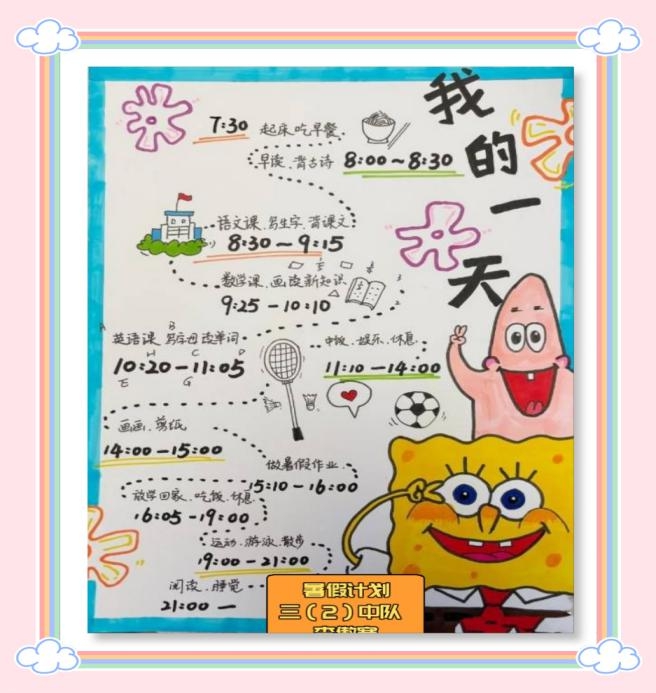 我的一天
7:30 起床、吃早餐.
早读、背古诗 8:00～8:30
语文课、写生字、背课文
8:30—9:15
数学课、画读新知识
9:25-10:10
英语课、写字母读单词
10:20-11:05
中饭、娱乐、休息
11:10-14:00
画画、剪纸
14:00-15:00
做暑假作业
15:10-16:00
放学回家、吃饭、休息
16:05-19:00
运动、游泳、散步
19:00-21:00
阅读、睡觉
21:00—
暑假计划
三（2）中队